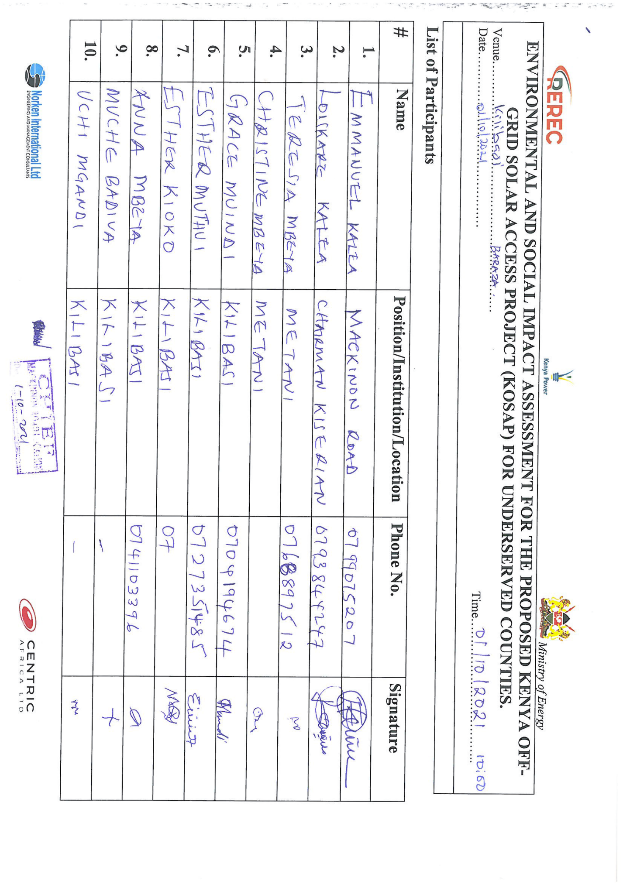 REREC
Kenya Power
Ministry of Energy
ENVIRONMENTAL AND SOCIAL IMPACT ASSESSMENT FOR THE PROPOSED KENYA OFF-
GRID SOLAR ACCESS PROJECT (KOSAP) FOR UNDERSERVED COUNTIES.
Venue. Kilibasi BARAZA
Date. 01/10/2021 Time. 01/10/2021 10:00
List of Participants
# Name Position/Institution/Location Phone No. Signature
1. EMMANUEL KALEA MACKINON ROAD 0799075207
2. LOISKARE KALEA CHAIRMAN KISERIAN 0793844247
3. TERESIA MBEYA METANI 0768897512
4. CHRISTINE MBEYA METANI
5. GRACE MUINDI KILIBASI 0704194674
6. ESTHER MUTHUI KILIBASI 0727351485
7. ESTHER KIOKO KILIBASI 07
8. ANNA MBEYA KILIBASI 0741103396
9. MUCHE BADIVA KILIBASI - +
10. UCHI MGANDI KILIBASI -
Norken International Ltd
CHIEF
1-10-2021
CENTRIC
AFRICA LTD